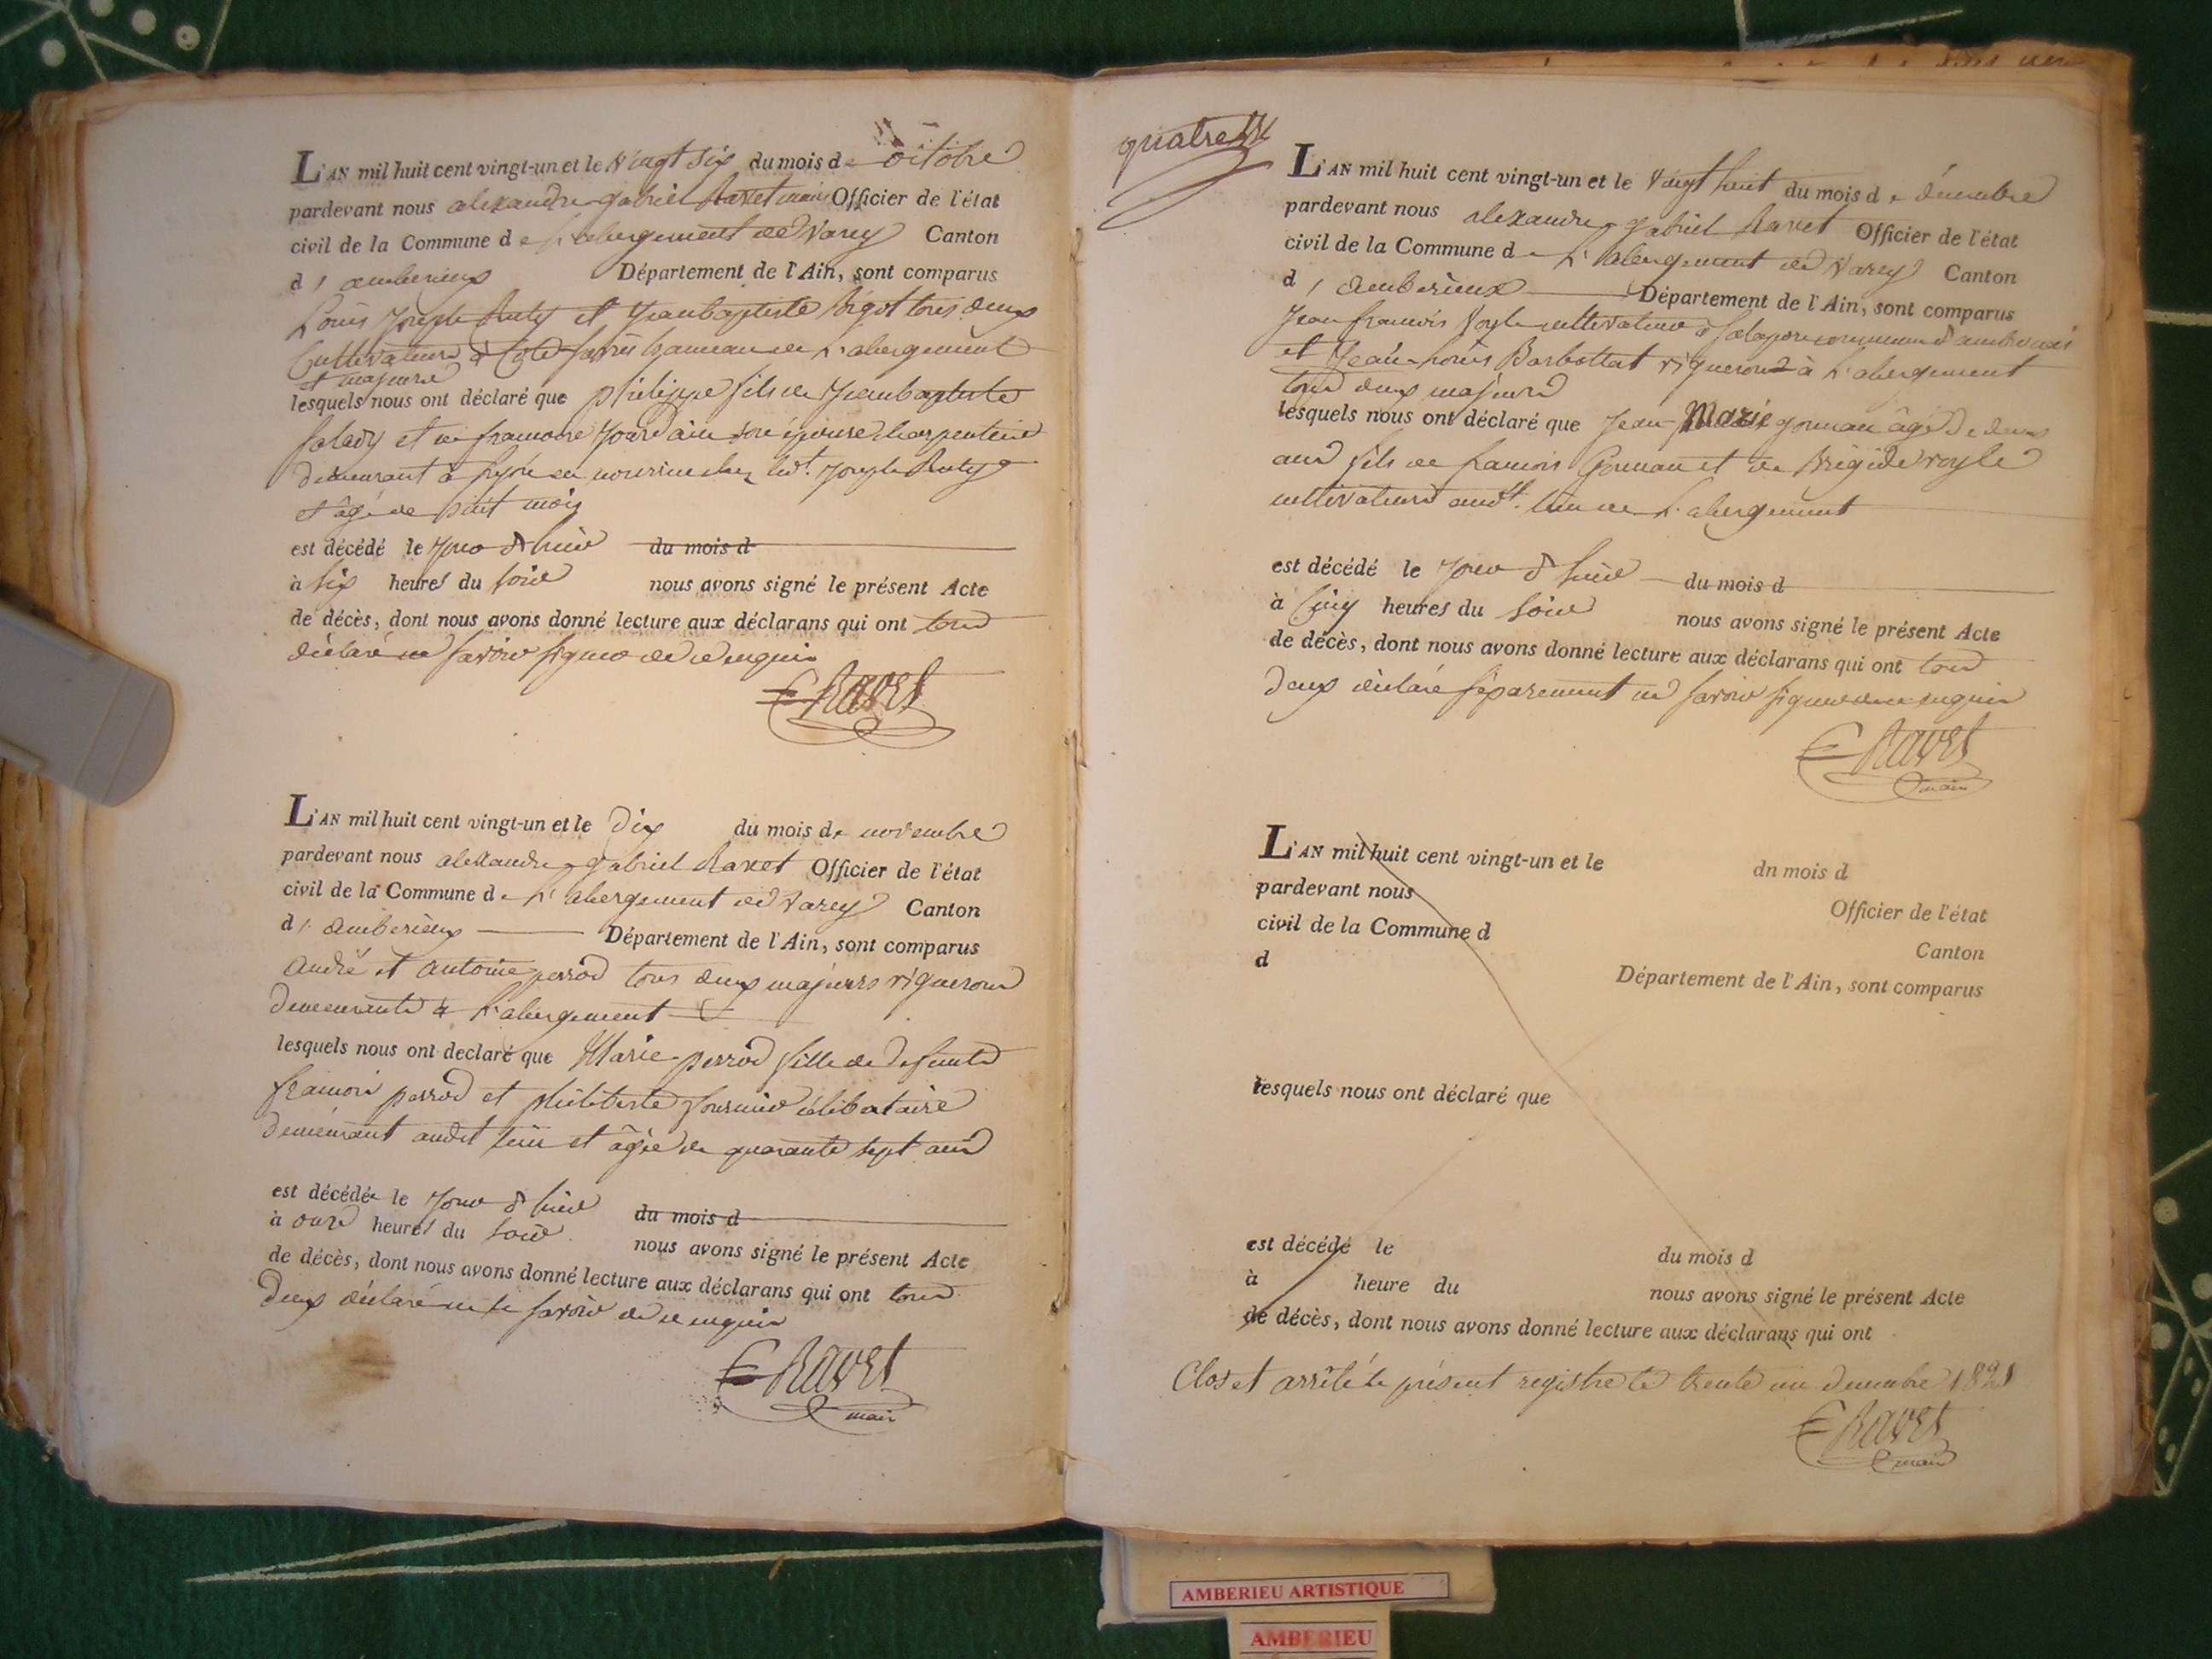 L'AN mil huit cent vingt-un et le vingt six du mois de octobre
pardevant nous alexandre gabriel Ravet maire Officier de l'état
civil de la Commune de L'abergement de Varey Canton
d'amberieux Département de l'Ain, sont comparus
Louis Joseph Ruty et Jeanbaptiste Bigot tous deux
Cultivateurs à Coté hameau de L'abergement
et majeurs
lesquels nous ont déclaré que philippe fils de Jeanbaptiste
falady et de francoise Jourdain son épouse charpentier
demeurant à en nourrice chez led.t Joseph Ruty
et âgé de huit mois
est décédé le Jour d'hier du mois d
à six heures du soir nous avons signé le présent Acte
de décès, dont nous avons donné lecture aux déclarans qui ont tous
déclaré ne savoir signer de ce enquis
Ravet
L'AN mil huit cent vingt-un et le Dix du mois de novembre
pardevant nous alexandre gabriel Ravet Officier de l'état
civil de la Commune de L'abergement de Varey Canton
d'amberieux Département de l'Ain, sont comparus
André et antoine perrod tous deux majeurs vignerons
demeurants à L'abergement
lesquels nous ont declaré que Marie perrod fille de defunts
francois perrod et philiberte fournier célibataire
demeurant audit lieu et âgée de quarante sept ans
est décédée le Jour d'hier du mois d
à onze heures du soir nous avons signé le présent Acte
de décès, dont nous avons donné lecture aux déclarans qui ont tous
deux déclaré ne le savoir de ce enquis
Ravet
maire
quatre
L'AN mil huit cent vingt-un et le vingt huit du mois de décembre
pardevant nous alexandre gabriel Ravet Officier de l'état
civil de la Commune de L'abergement de Varey Canton
d'amberieux Département de l'Ain, sont comparus
Jean francois Voyle cultivateur à commune d'ambronai
et Jean Louis Barbottat vigneron à L'abergement
tous deux majeurs
lesquels nous ont déclaré que Jean Marie gounan âgé de deux
ans fils de francois Gounan et de Brigide voyle
cultivateurs aud.t lieu de L'abergement
est décédé le Jour d'hier du mois d
à Cinq heures du soir nous avons signé le présent Acte
de décès, dont nous avons donné lecture aux déclarans qui ont tous
deux déclaré séparement ne savoir signer de ce enquis
Ravet
maire
L'AN mil huit cent vingt-un et le dn mois d
pardevant nous Officier de l'état
civil de la Commune d Canton
d Département de l'Ain, sont comparus
lesquels nous ont déclaré que
est décédé le du mois d
à heure du nous avons signé le présent Acte
de décès, dont nous avons donné lecture aux déclarans qui ont
Clos et arrêté le présent registre le trente un decembre 1821
Ravet
maire
AMBERIEU ARTISTIQUE
AMBERIEU